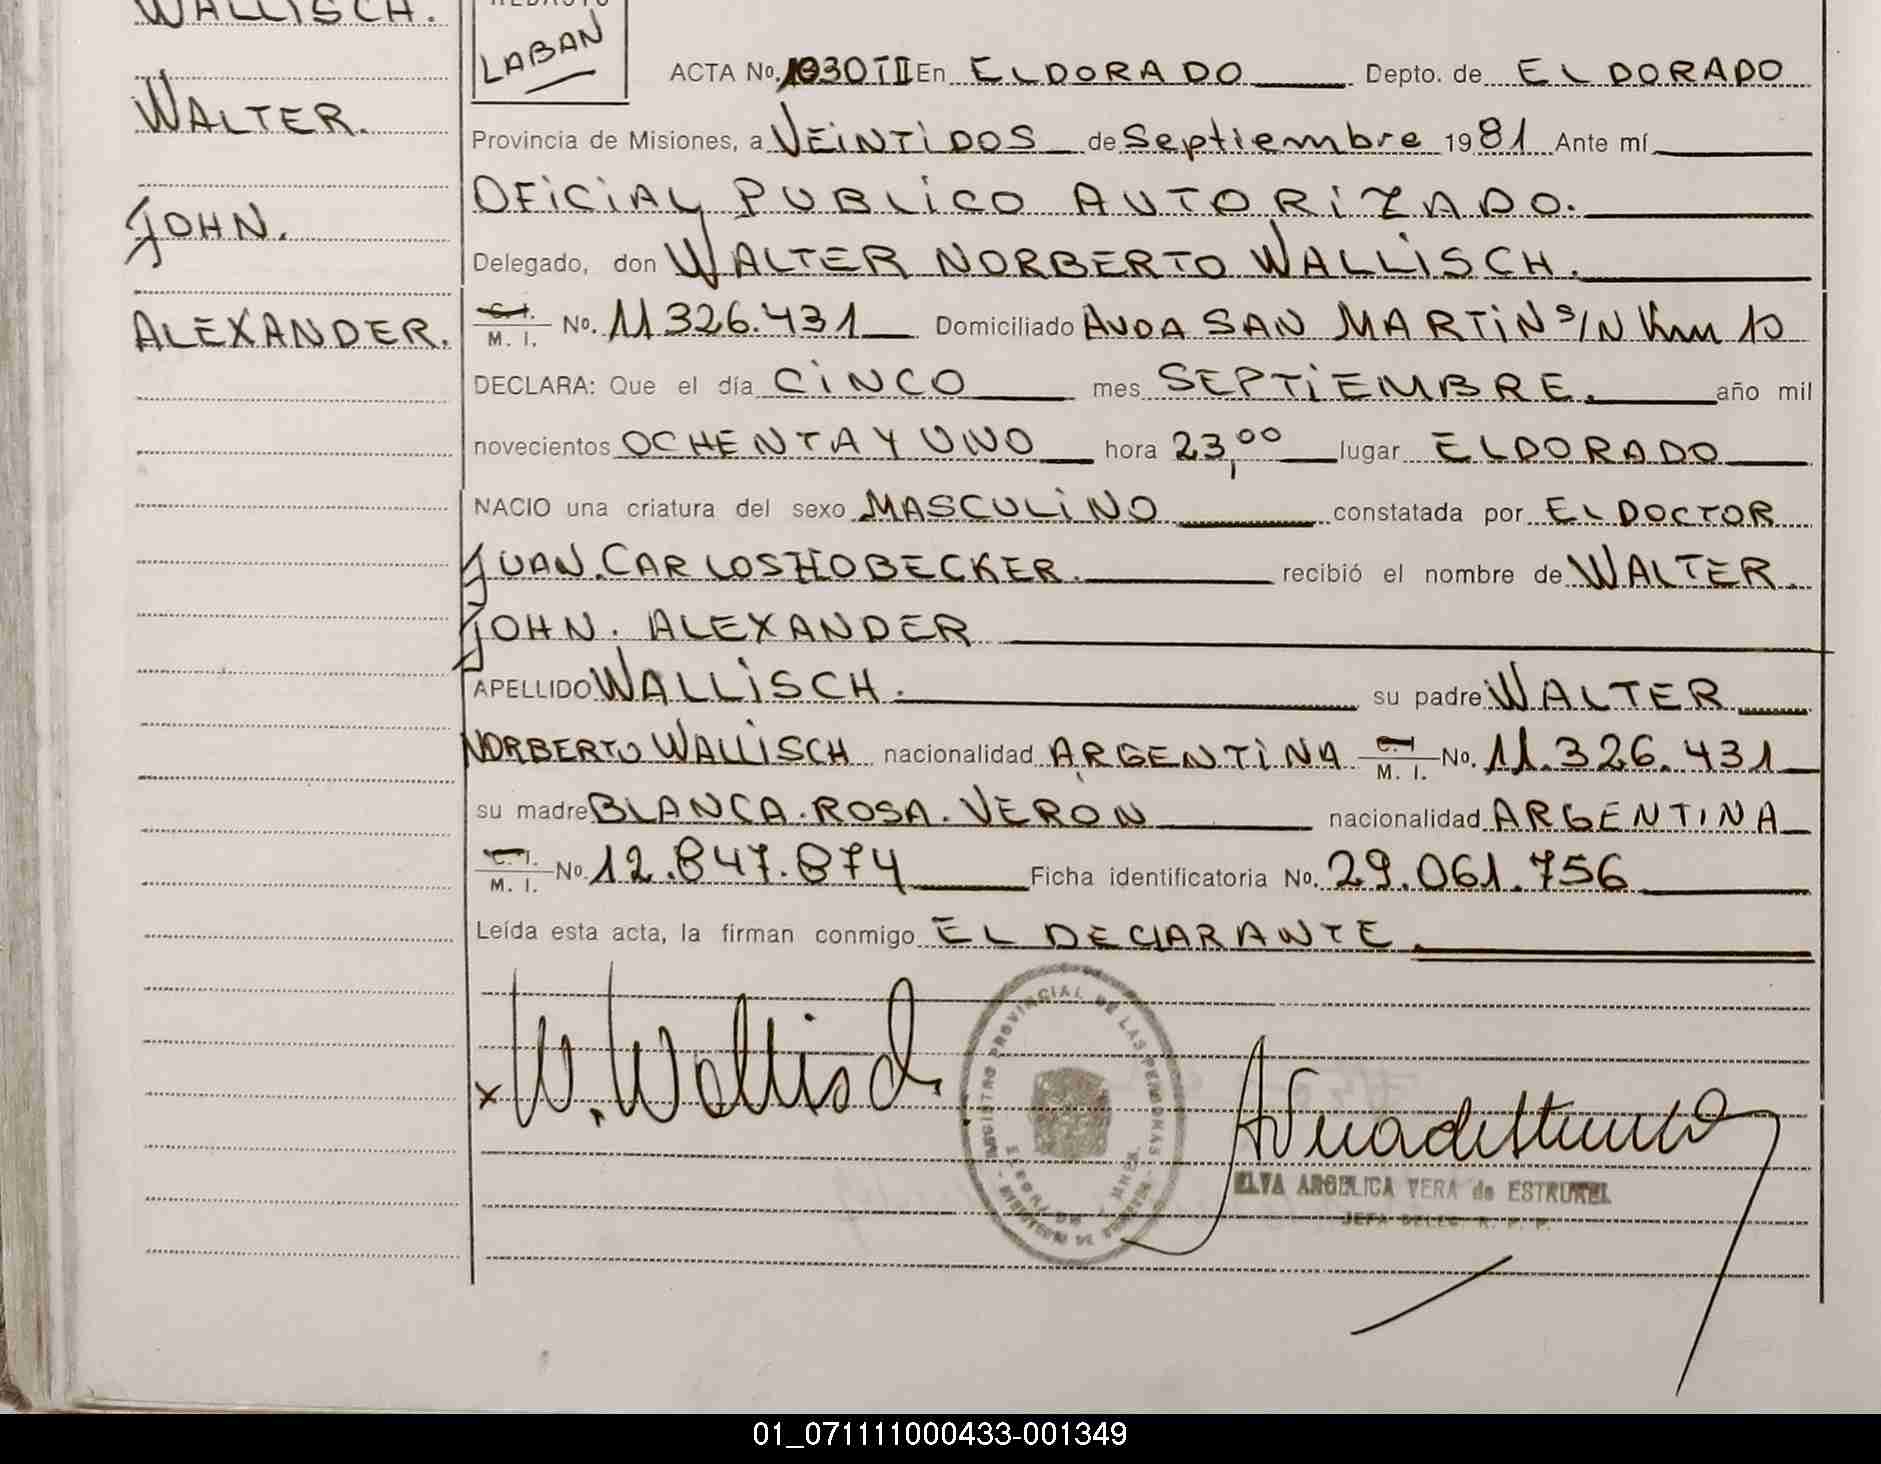 WALLISCH.
WALTER.
JOHN.
ALEXANDER.
REDACTO
LABAN
ACTA No. 1030 TII En ELDORADO Depto. de ELDORADO
Provincia de Misiones, a VEINTIDOS de Septiembre 1981 Ante mí
OFICIAL PUBLICO AUTORIZADO.
Delegado, don WALTER NORBERTO WALLISCH.
C. I. / M. I. No. 11326.431 Domiciliado AVDA SAN MARTIN S/N Km 10
DECLARA: Que el día CINCO mes SEPTIEMBRE. año mil
novecientos OCHENTA Y UNO hora 23,00 lugar ELDORADO
NACIO una criatura del sexo MASCULINO constatada por EL DOCTOR
JUAN. CARLOS HOBECKER. recibió el nombre de WALTER.
JOHN. ALEXANDER
APELLIDO WALLISCH. su padre WALTER
NORBERTO WALLISCH nacionalidad ARGENTINA C. I. / M. I. No. 11.326.431
su madre BLANCA. ROSA. VERON nacionalidad ARGENTINA
C. I. / M. I. No. 12.847.874 Ficha identificatoria No. 29.061.756
Leída esta acta, la firman conmigo EL DECLARANTE.
x W. Wallisch
REGISTRO PROVINCIAL DE LAS PERSONAS
ELVA ANGELICA VERA de ESTRUKEL
JEFA DELEG. R. P. P.
01_071111000433-001349